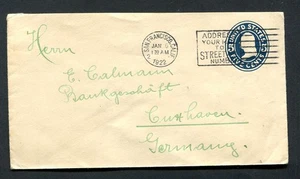 SAN FRANCISCO, CALIF.
JAN
1922
ADDRESS
YOUR
TO
STREET
NUMBER
UNITED STATES
5 5
FIVE CENTS
Herrn
E. Calmann
Bankgeschäft
Cuxhaven
Germany.